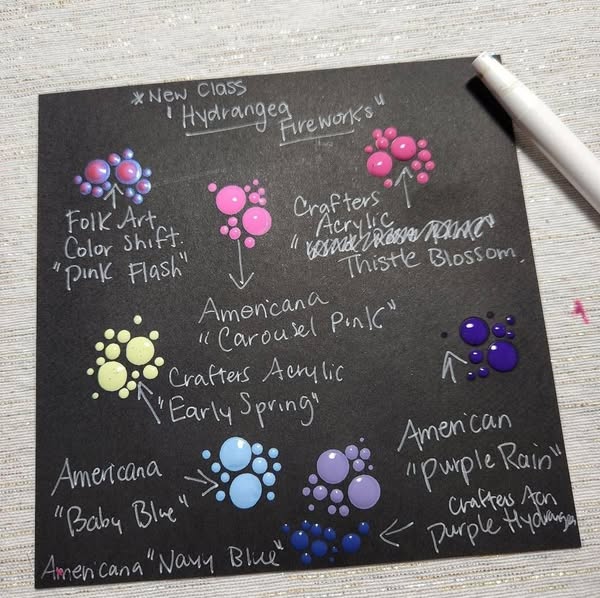 *New Class
"Hydrangea
Fireworks"
Folk Art
Color Shift.
"Pink Flash"
Crafters
Acrylic
"
Thistle Blossom.
Americana
"Carousel Pink"
Crafters Acrylic
"Early Spring"
American
"Purple Rain"
Americana
"Baby Blue"
Crafters Acn
Purple Hydrangea
Americana "Navy Blue"